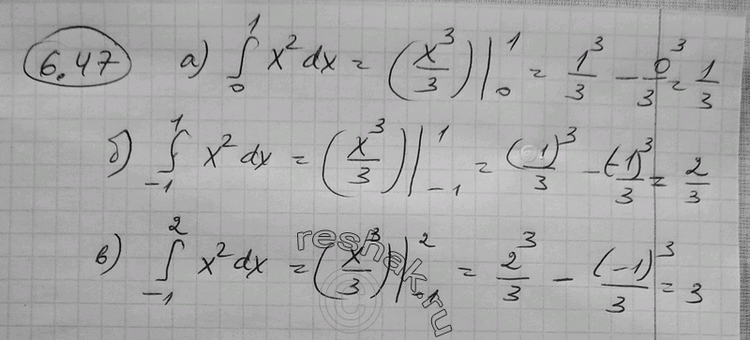 6.47 а) ∫₀¹ x² dx = (x³/3)|₀¹ = 1³/3 − 0³/3 = 1/3
б) ∫₋₁¹ x² dx = (x³/3)|₋₁¹ = (1)³/3 − (-1)³/3 = 2/3
в) ∫₋₁² x² dx = (x³/3)|₋₁² = 2³/3 − (-1)³/3 = 3
reshak.ru